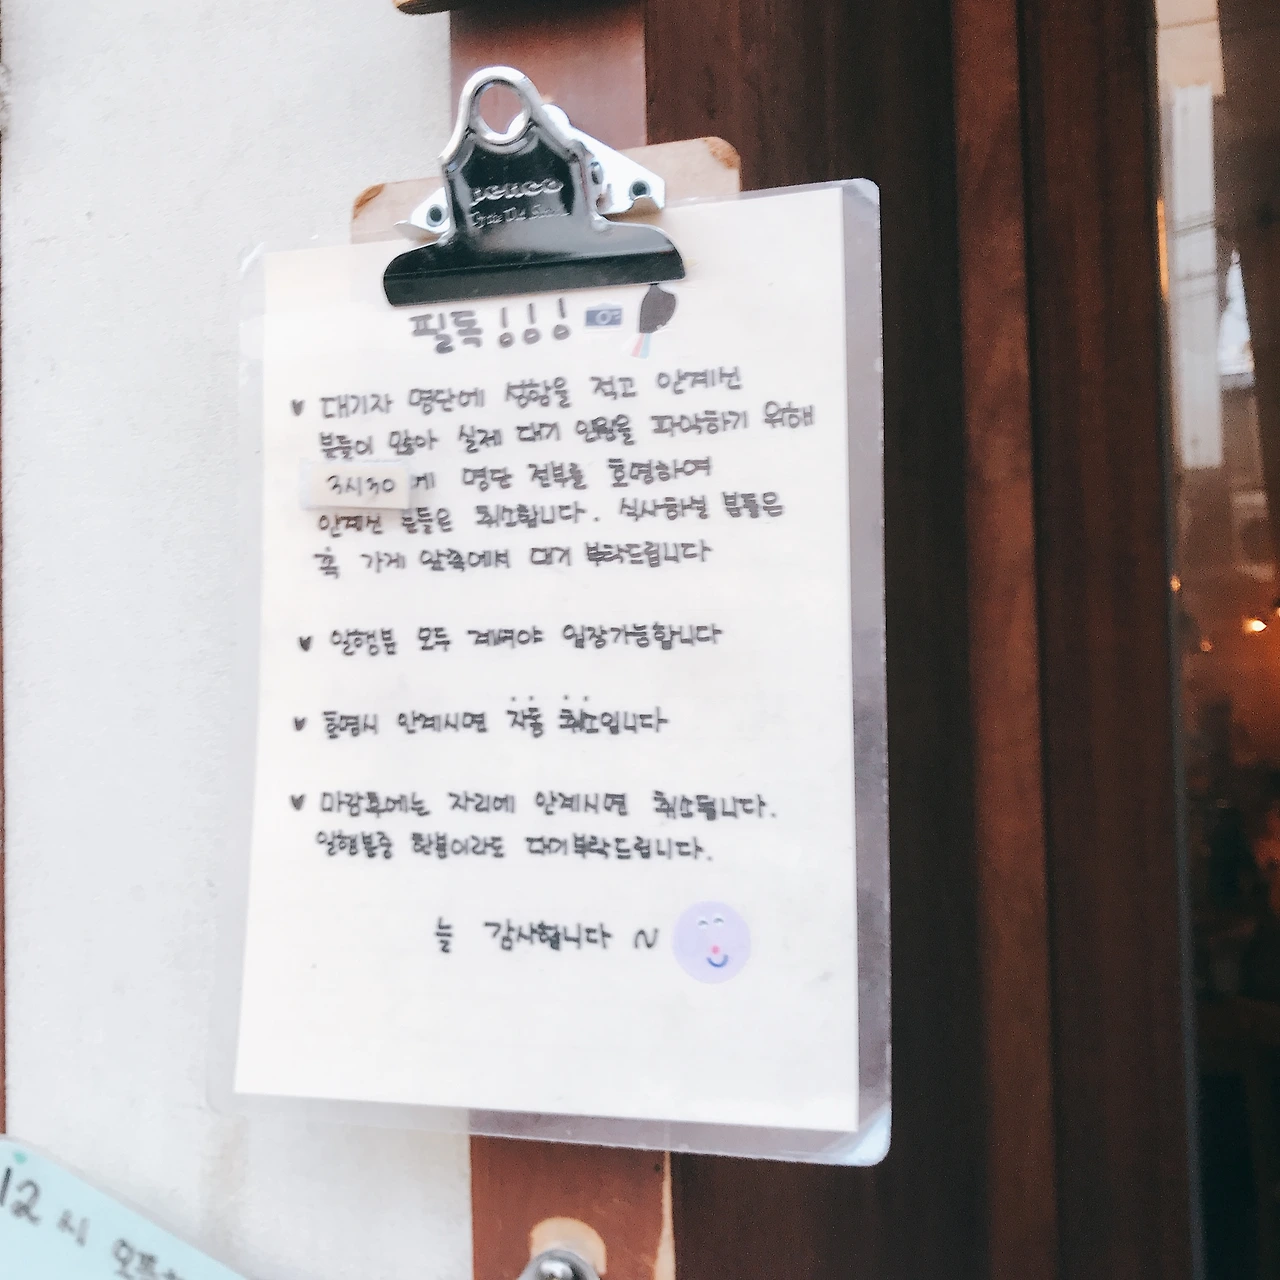 penco
필독!!!
♥ 대기자 명단에 성함을 적고 안계신
분들이 많아 실제 대기 인원을 파악하기 위해
3시30 에 명단 전부를 호명하여
안계신 분들은 취소됩니다. 식사하실 분들은
꼭 가게 앞쪽에서 대기 부탁드립니다
♥ 일행분 모두 계셔야 입장가능합니다
♥ 호명시 안계시면 자동 취소입니다
♥ 마감후에는 자리에 안계시면 취소됩니다.
일행분중 한분이라도 대기부탁드립니다.
늘 감사합니다 ~
12시